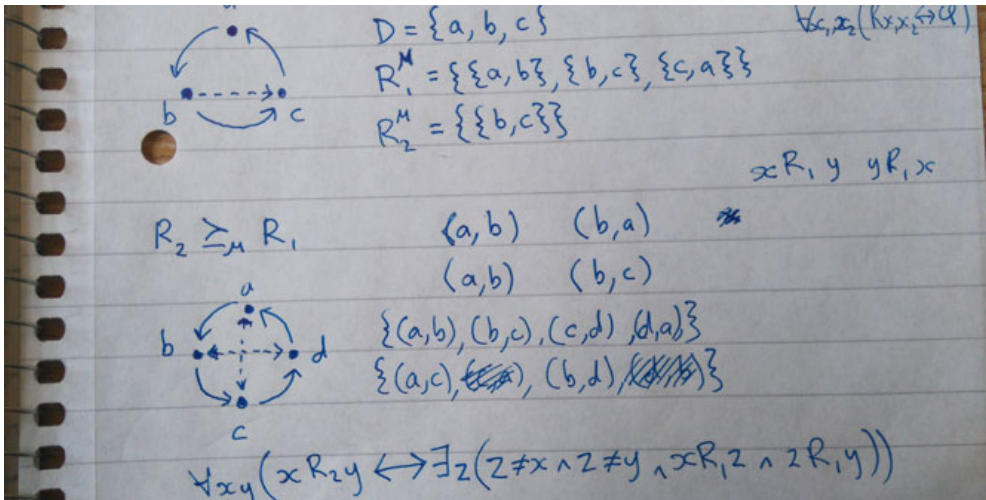 a
D = {a, b, c}
∀x₁,x₂(Rx₁x₂↔φ)
b c
R₁ᴹ = {{a,b}, {b,c}, {c,a}}
R₂ᴹ = {{b,c}}
xR₁y yR₁x
R₂ ≥ᴹ R₁ (a,b) (b,a)
(a,b) (b,c)
a
b d
c
{(a,b), (b,c), (c,d), (d,a)}
{(a,c), (b,d), }
∀xy(xR₂y ↔ ∃z(z≠x ∧ z≠y ∧ xR₁z ∧ zR₁y))